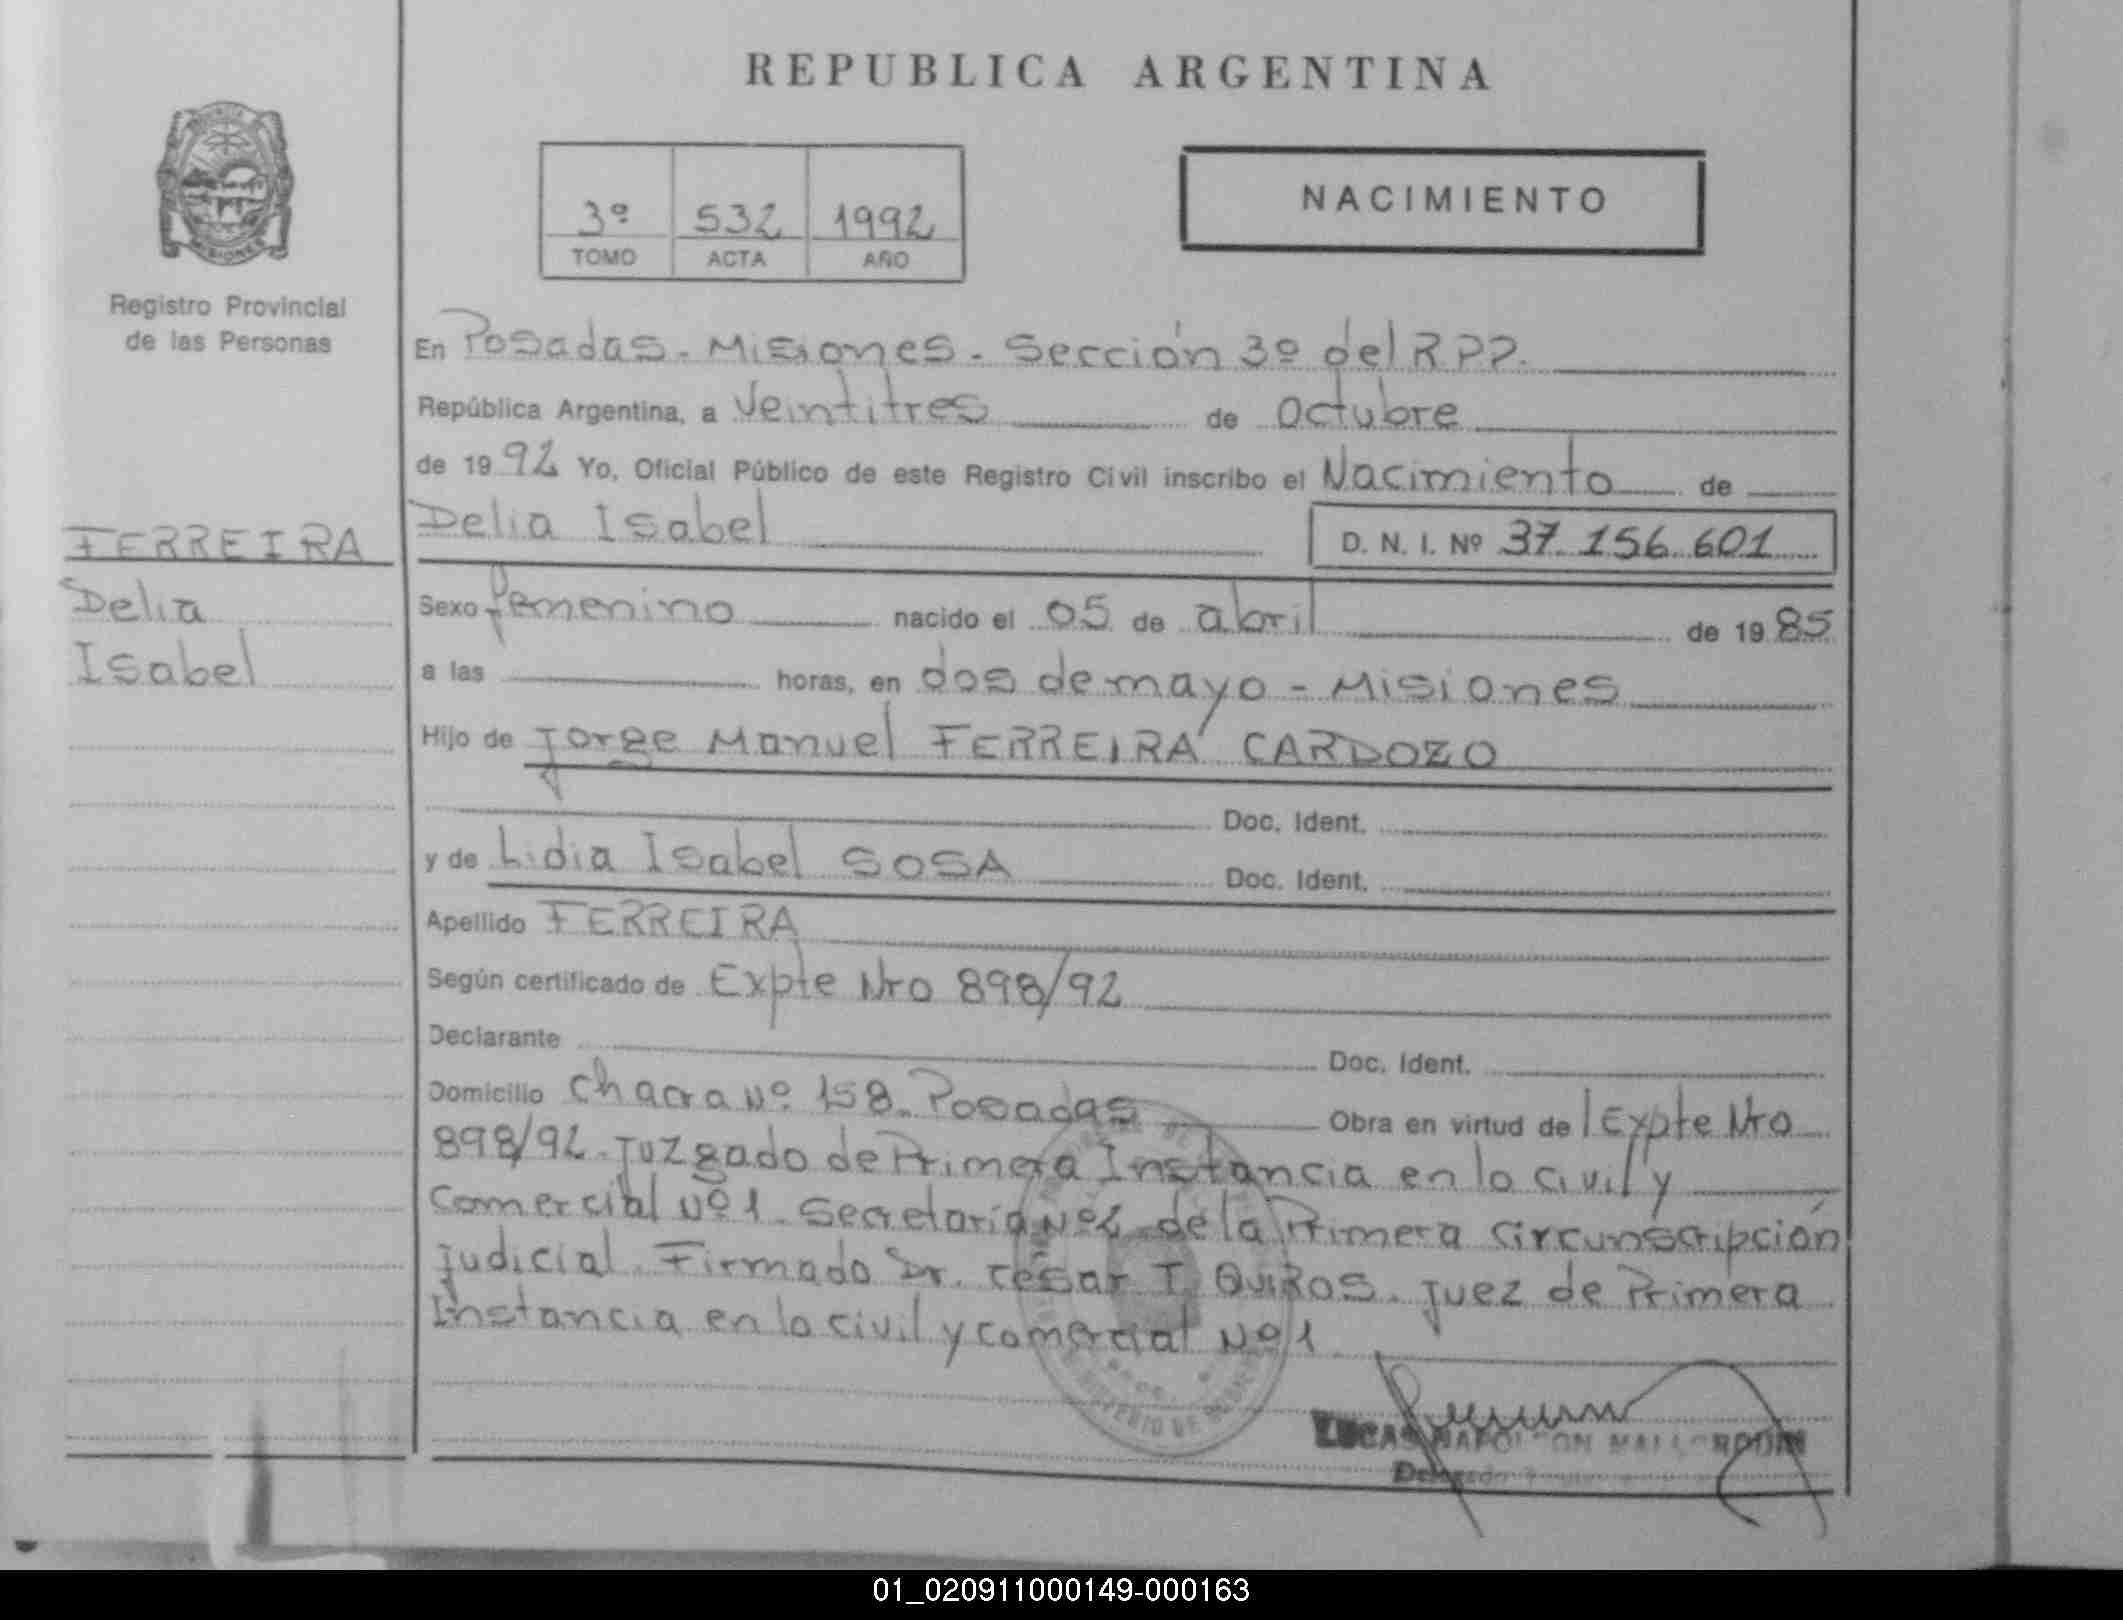 REPUBLICA ARGENTINA
NACIMIENTO
3º 532 1992
TOMO ACTA AÑO
Registro Provincial
de las Personas
En Posadas. Misiones. Sección 3º del R.P.P.
República Argentina, a Veintitres de Octubre
de 1992 Yo, Oficial Público de este Registro Civil inscribo el Nacimiento de
Delia Isabel D. N. I. Nº 37.156.601
FERREIRA
Delia
Isabel
Sexo femenino nacido el 05 de abril de 1985
a las horas, en dos de mayo - Misiones
Hijo de Jorge Manuel FERREIRA CARDOZO
Doc. Ident.
y de Lidia Isabel SOSA Doc. Ident.
Apellido FERREIRA
Según certificado de Expte Nro 898/92
Declarante Doc. Ident.
Domicilio Chacra Nº 158. Posadas Obra en virtud de Expte Nro
898/92. Juzgado de Primera Instancia en lo Civil y
Comercial Nº 1. Secretaría Nº 2 de la Primera Circunscripción
Judicial. Firmado Dr. César I. QUIROS. Juez de Primera
Instancia en lo civil y comercial Nº 1
LUCAS NAPOLEON
01_020911000149-000163